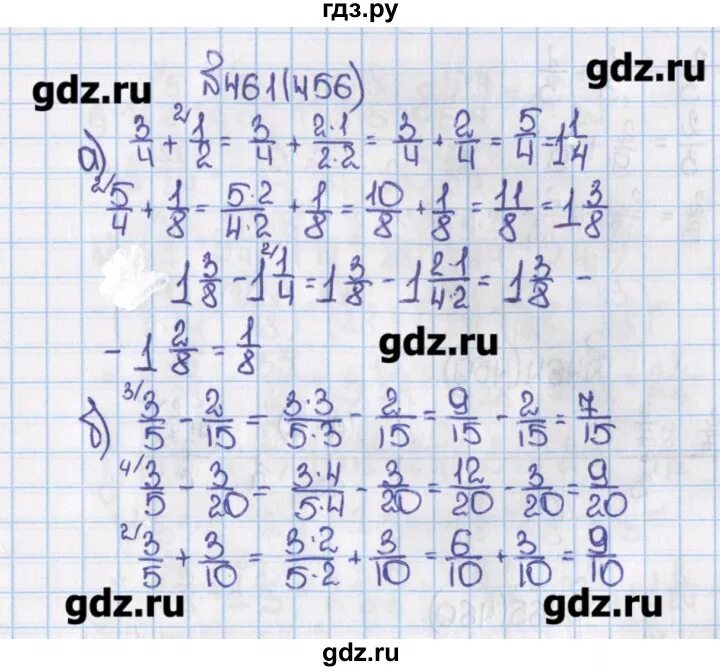 гдз.ру
gdz.ru
gdz.ru
№461(456)
а) 3/4 + 2/ 1/2 = 3/4 + 2·1/2·2 = 3/4 + 2/4 = 5/4 = 1 1/4
2/ 5/4 + 1/8 = 5·2/4·2 + 1/8 = 10/8 + 1/8 = 11/8 = 1 3/8
1 3/8 - 1 2/ 1/4 = 1 3/8 - 1 2·1/4·2 = 1 3/8 -
- 1 2/8 = 1/8
gdz.ru
б) 3/ 3/5 - 2/15 = 3·3/5·3 - 2/15 = 9/15 - 2/15 = 7/15
4/ 3/5 - 3/20 = 3·4/5·4 - 3/20 = 12/20 - 3/20 = 9/20
2/ 3/5 + 3/10 = 3·2/5·2 + 3/10 = 6/10 + 3/10 = 9/10
gdz.ru
gdz.ru
gdz.ru